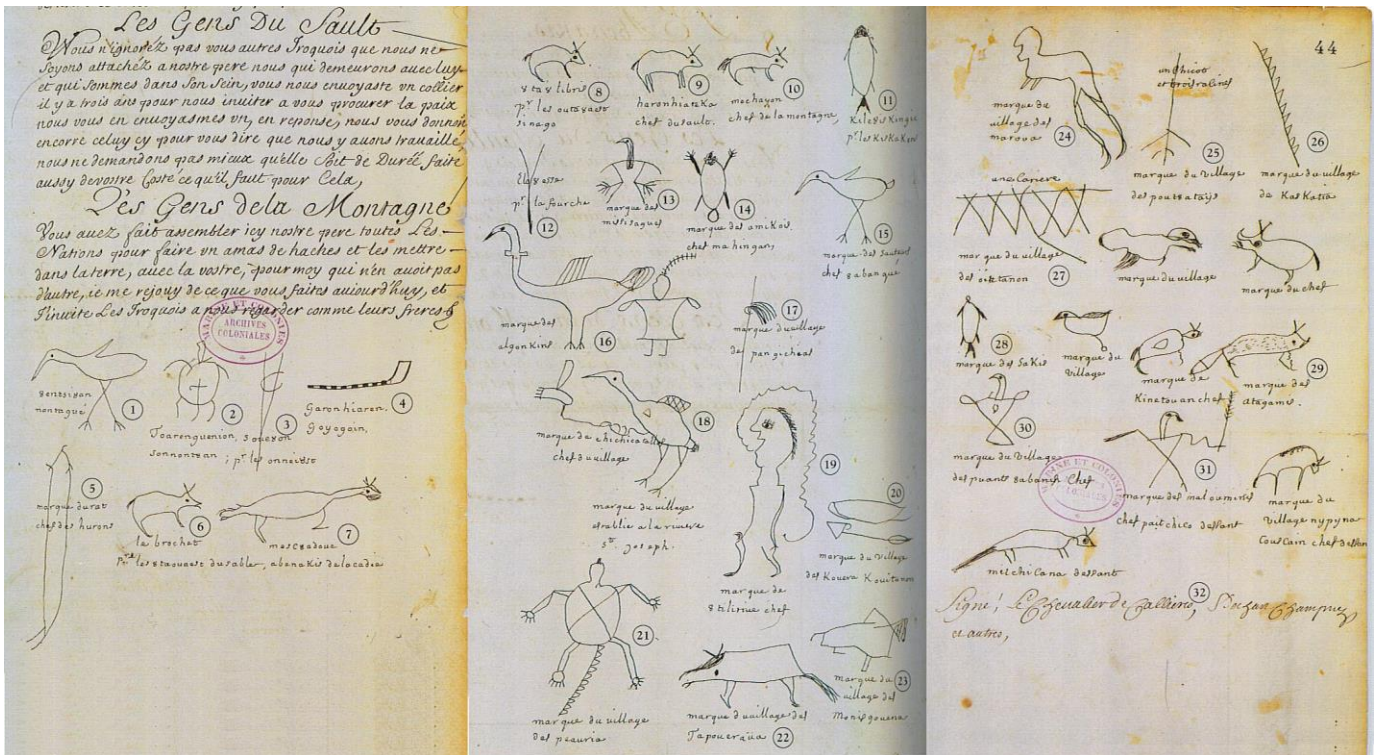 Les Gens Du Sault
Vous n'ignorez pas vous autres Iroquois que nous ne
soyons attachez a nostre pere nous qui demeurons avec luy
et qui sommes dans Son Sein, vous nous envoyaste vn collier
il y a trois ans pour nous inuiter a vous procurer la paix
nous vous en envoyasmes vn, en reponse, nous vous donnons
encorre celuy cy pour vous dire que nous y auons trauaillé,
nous ne demandons pas mieux qu'elle Soit de Durée, faite
aussy de vostre Costé ce qu'il faut pour Cela,
Les Gens de la Montagne
Vous auez fait assembler icy nostre pere toutes Les
Nations pour faire vn amas de haches et les mettre
dans la terre, auec la vostre, pour moy qui n'en auoit pas
d'autre, ie me rejouy de ce que vous faites aujourd'huy, et
J'inuite Les Iroquois a nous regarder comme leurs freres
MARINE ET COLONIES
ARCHIVES
COLONIALES
montagué
1
2
3
4
Toarenguenion,
sonnontuan ; pr les onneiust
Garonhiaren.
Goyogoin,
5
marque du rat
chef des hurons
6
le brochet
7
mescouadoue
abenakis de lacadie
8
pr les outauast
sinago
9
haronhiateka
chef du sault.
10
mechayon
chef de la montagne,
11
Kileouskingié
pr les KisKaKons
12
pr la fourche
13
marque des
missisagues
14
marque des amikois.
chef mahingan,
15
marque des sauteurs
chef 8abangué
16
marque des
algonKins
17
marque du village
18
marque de chichicatalle
chef du village
marque du village
establie a la riuiere
st Joseph.
19
marque de
8tiliriue chef
20
marque du village
des Kouera Kouitanon
21
marque du village
des peauria
22
marque du village des
Tapoueraüa
23
marque du
village des
Monisgouena
44
24
marque du
village des
maroua
25
un chicot
et trois racines
marque du Village
des pout8atamis
26
marque du village
de KasKatia
27
marque du village
des 8ietanon
marque du village
marque du chef
28
marque des SaKis
marque du
village
marque de
Kinetouan chef
29
marque des
atagamis.
30
marque du Village
des puants 8abanish Chef
31
marque des maloumines
chef paitchico dessant
marque du
Village nypyna
Couscain chef dessant
MARINE ET COLONIES
melchicana dessant
32
Signé, Le Chevalier de Callieres, Bochart Champigny
et autres,